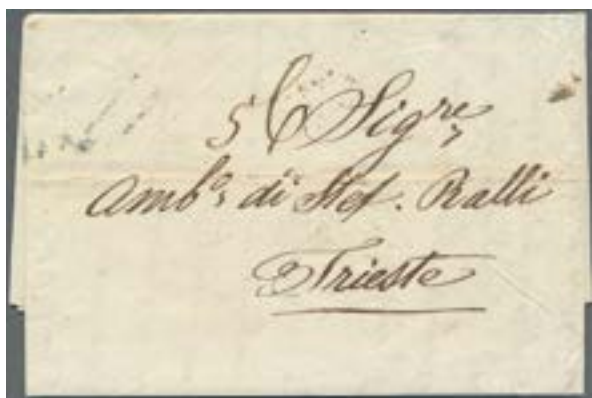 Sigre
Ambo. di Stef. Ralli
Trieste